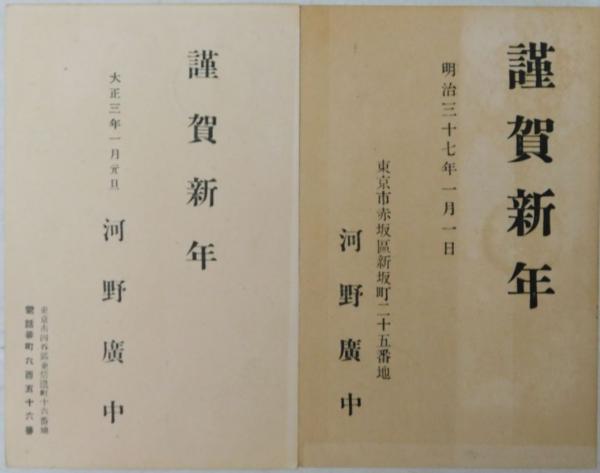 謹賀新年
明治三十七年一月一日
東京市赤坂區新坂町二十五番地
河野廣中
謹賀新年
大正三年一月元旦
河野廣中
東京市四谷區東信濃町十六番地
電話番町六百五十六番